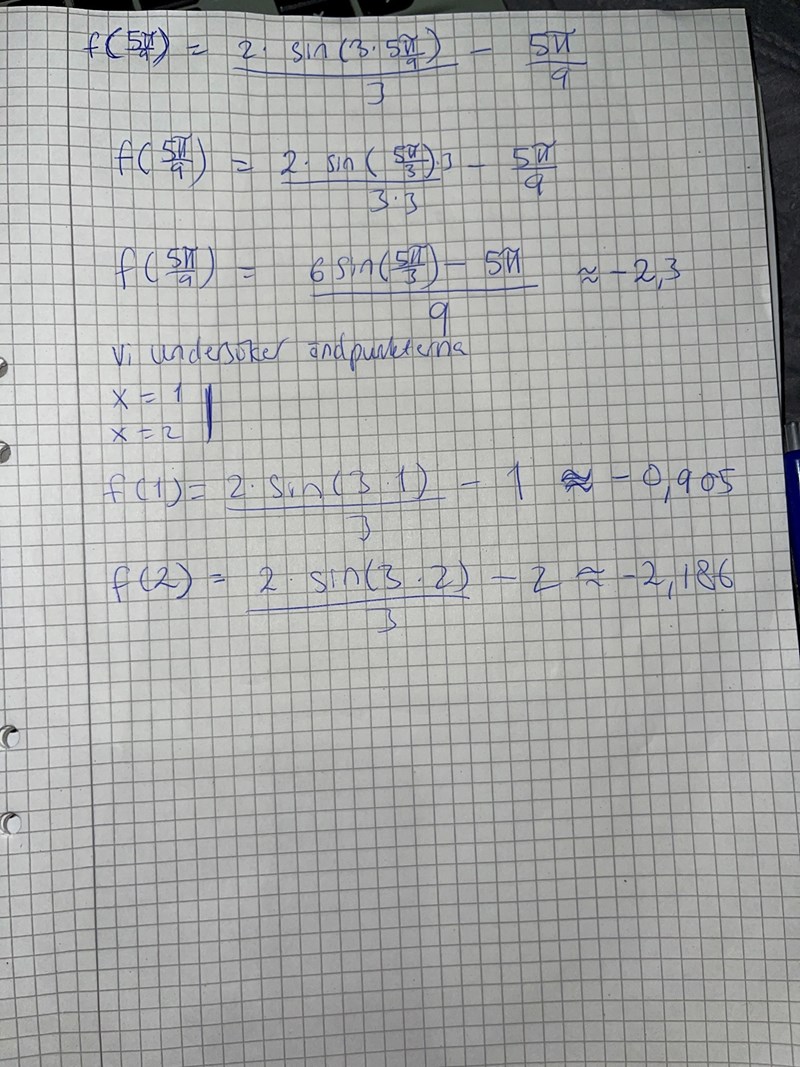 f(5π/9) = 2· sin(3·5π/9)/3 − 5π/9
f(5π/9) = 2· sin(5π/3)·3/3·3 − 5π/9
f(5π/9) = 6 sin(5π/3) − 5π/9 ≈ −2,3
Vi undersöker ändpunkterna
x = 1
x = 2
f(1) = 2· sin(3·1)/3 − 1 ≈ −0,905
f(2) = 2· sin(3·2)/3 − 2 ≈ −2,186